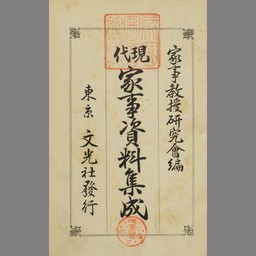 家事教授研究會編
現代
家事資料集成
東京 文光社發行